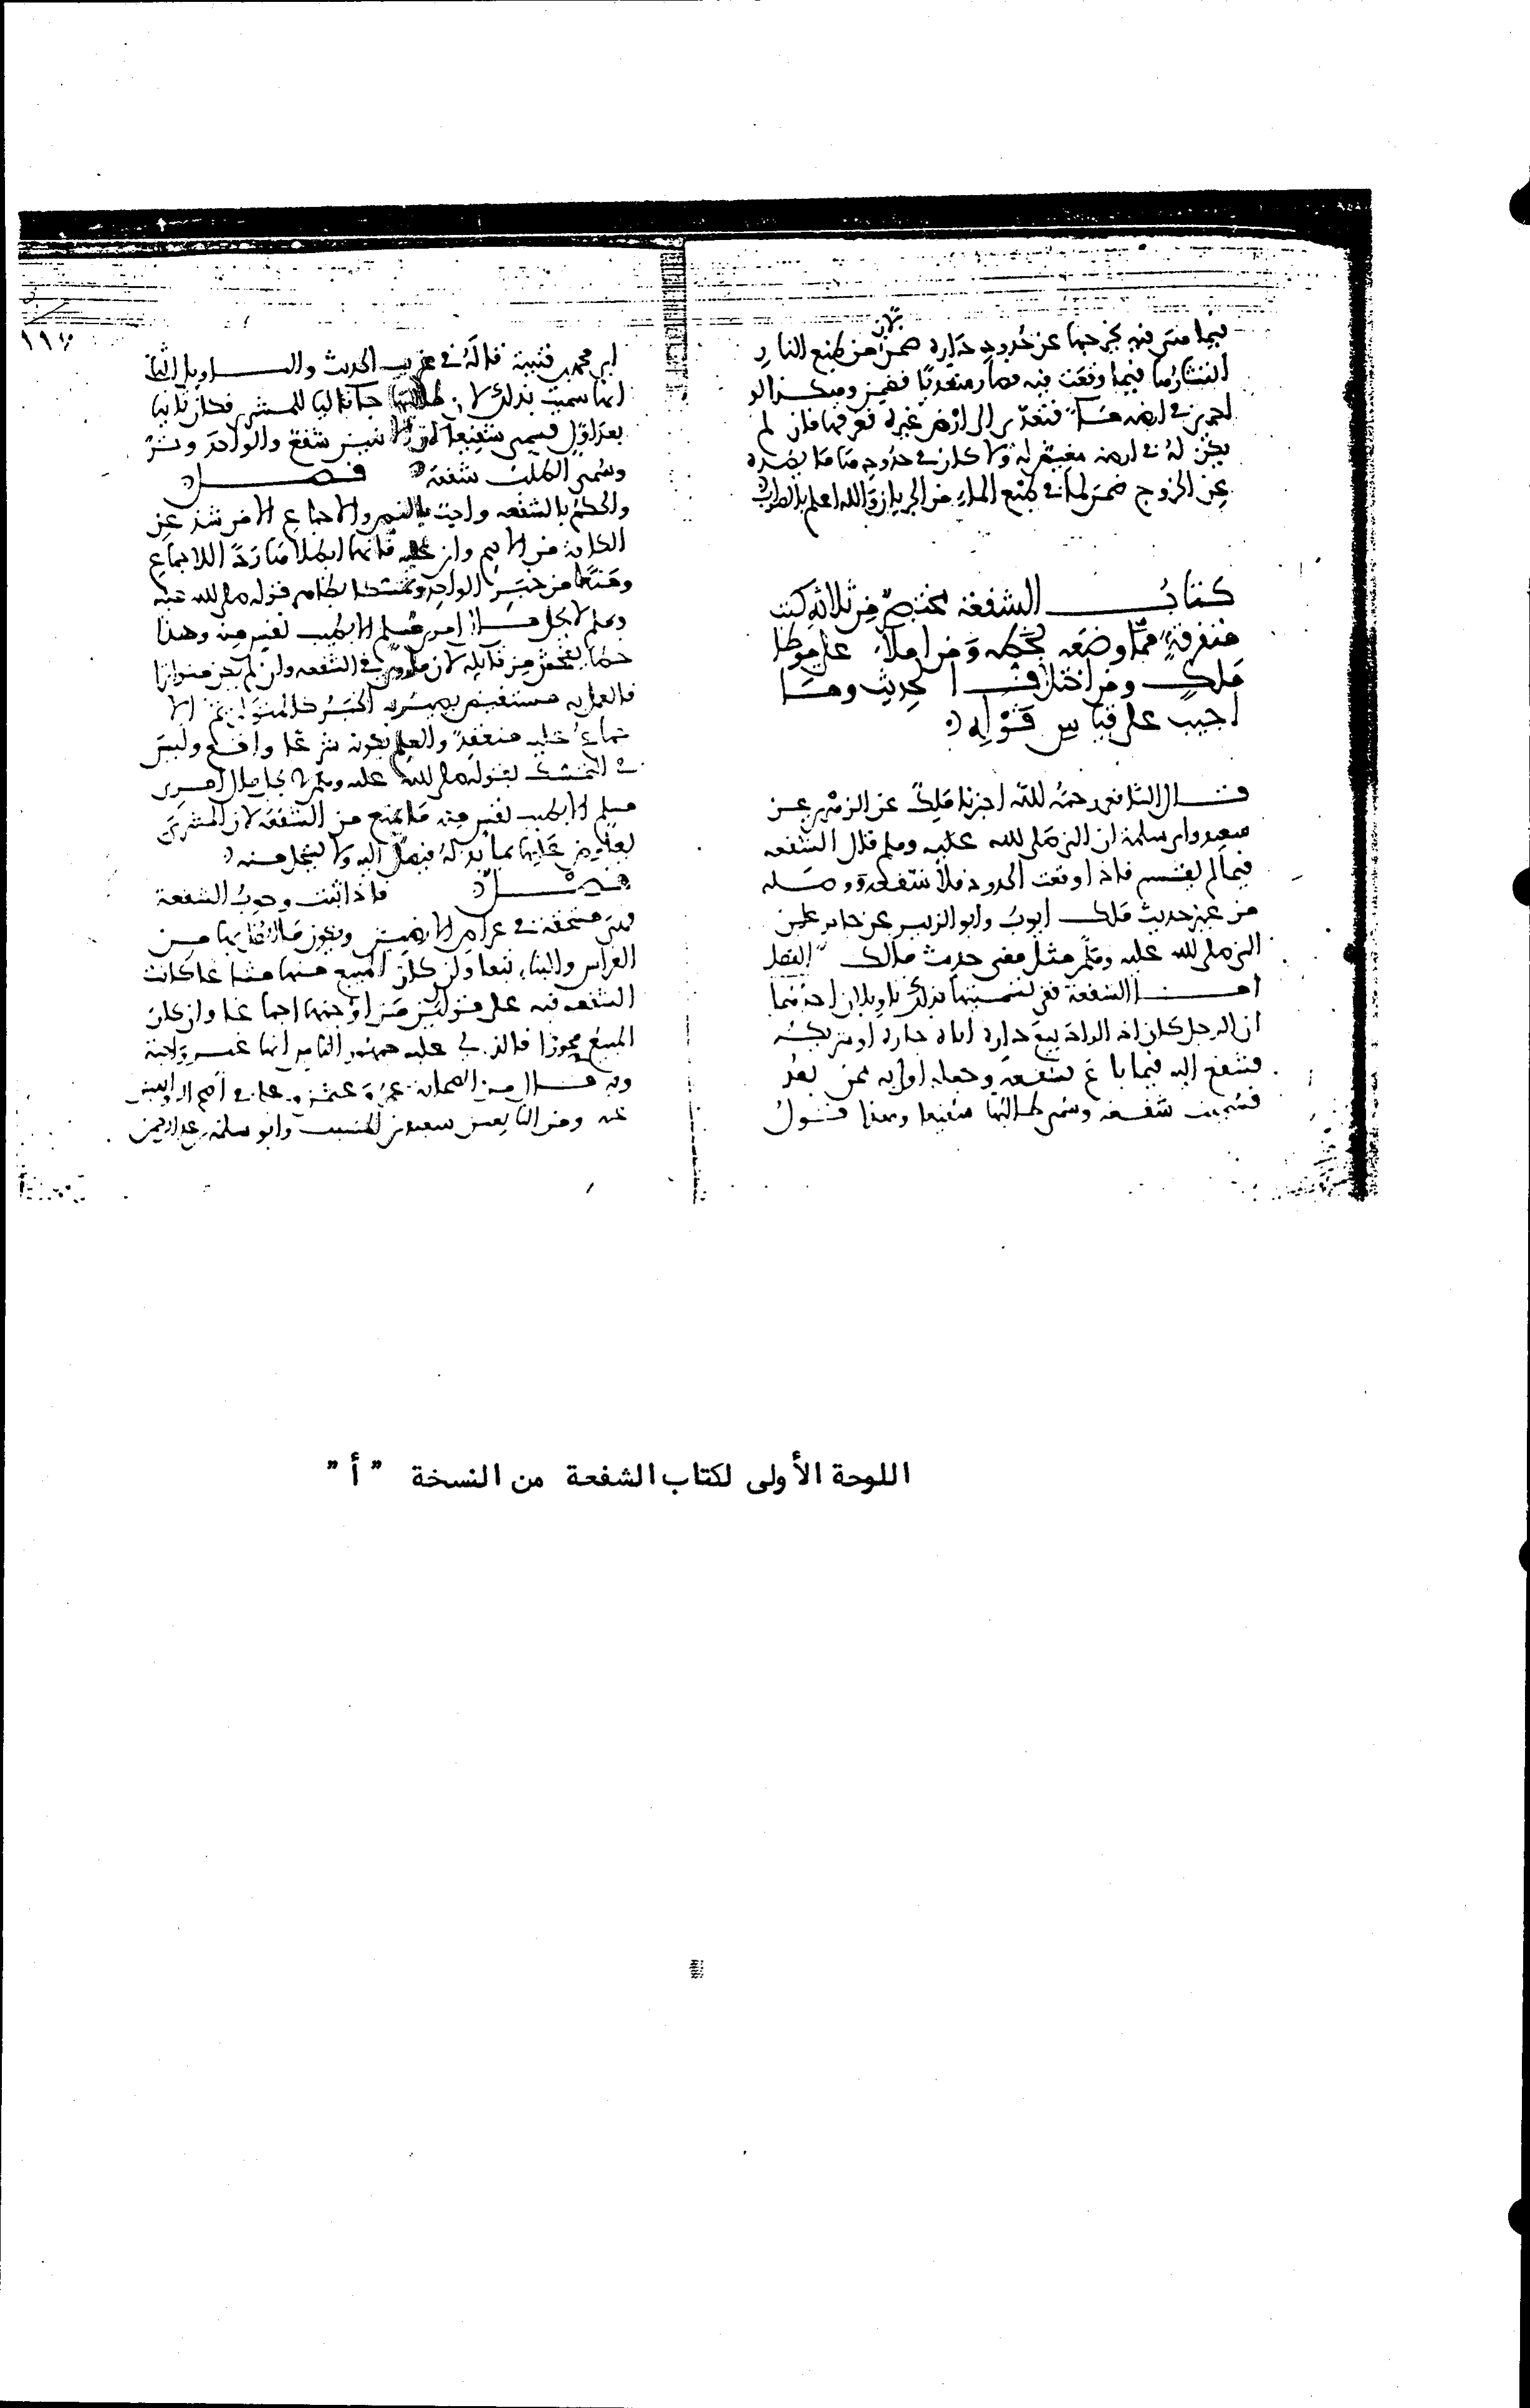 فيما متى فيه يخرجها عن حدود داره ضمن لان من طبع النار
انتشارها فيما وقعت فيه فصار متعديا فضمن وهكذا لو
اجرى في ارضه ماء فتعدى الى ارض غيره فغرقها فان لم
يكن له في ارضه مغيض له ولا كان في حدوده ما يصده
عن الخروج ضمن لما في طبع الماء من الجريان والله اعلم بالصواب
كتاب الشفعة مختصر من ثلاثة كتب
متفرقة مما وضعه بخطه ومن املاء على موطا
ملك ومن اختلاف الحديث ومما
اجيب على قياس قوله
قال الشافعي رحمه الله اخبرنا ملك عن الزهري عن
سعيد وابي سلمة ان النبي صلى الله عليه وسلم قال الشفعه
فيما لم يقسم فاذا وقعت الحدود فلا شفعة ووصله
من غير حديث ملك ايوب وابو الزبير عن جابر عن
النبي صلى الله عليه وسلم مثل معنى حديث مالك
اما الشفعة ففي تسميتها بذلك تاويلان احدهما
ان الرجل كان اذا اراد بيع داره اتاه جاره او شريكه
فشفع اليه فيما باع فشفعه وجعله اولى به ممن بعد
فسميت شفعة وسمي طالبها شفيعا وهذا قول
١١٧
ابي محمد بن قتيبة قاله في غريب الحديث والتاويل الثاني
انها سميت بذلك لان طالبها جاء تاليا للمشتري فكان ثانيا
بعد اول فسمي شفيعا لان الاثنين شفع والواحد وتر
وسمي الطلب شفعة فصل
والحكم بالشفعه واجب بالنص والاجماع الا من شذ عن
الكافة من الاصم وابن علية فانهما ابطلاها ردا للاجماع
ومنعا من خبر الواحد وتمسكا بظاهر قوله صلى الله عليه
وسلم لا يحل مال امرئ مسلم الا بطيب نفس منه وهذا
خطا يفحش من قايله لان ما روي في الشفعه وان لم يكن متواترا
فالعمل به مستفيض يصير به الخبر كالمتواتر ثم الا
جماع عليه منعقد والعلم بكونه شرعا واقع وليس
في التمسك بقوله صلى الله عليه وسلم لا يحل مال امرئ
مسلم الا بطيب نفس منه ما يمنع من الشفعة لان المشتري
يعاوض عليها بما بذله فيصل اليه ولا يستحل منه
فصل فاذا ثبت وجوب الشفعة
فهي مستحقة في عراص الارضين ويكون ما اتصل بها من
الغراس والبناء تبعا وان كان المبيع منها مشاعا كانت
الشفعه فيه على قول من اوجبها اجماعا وان كان
المبيع محوزا فالذي عليه جمهور الناس انها غير واجبة
وبه قال من الصحابة عمر وعثمن وعلي في اصح الروايتين
عنه ومن التابعين سعيد بن المسيب وابو سلمة بن عبد الرحمن
اللوحة الأولى لكتاب الشفعة من النسخة " أ "